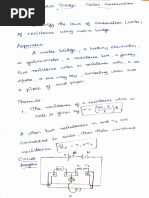 Meter Bridge Series Combination
the law of combination (series)
of resistance using metre bridge
Apparatus
A metre bridge, a battery eliminator,
a galvanometer, a resistance box, a jockey,
two resistance wires or resistance coils, a
a one way key, connecting wires, and
a piece of sand paper.
Formula
1. The resistance of a resistance wire or
coil is given by
2. When two resistances r₁ and r₂ are
connected in series, then their combined
resistance
Rs = r₁ + r₂
Circuit
diagram